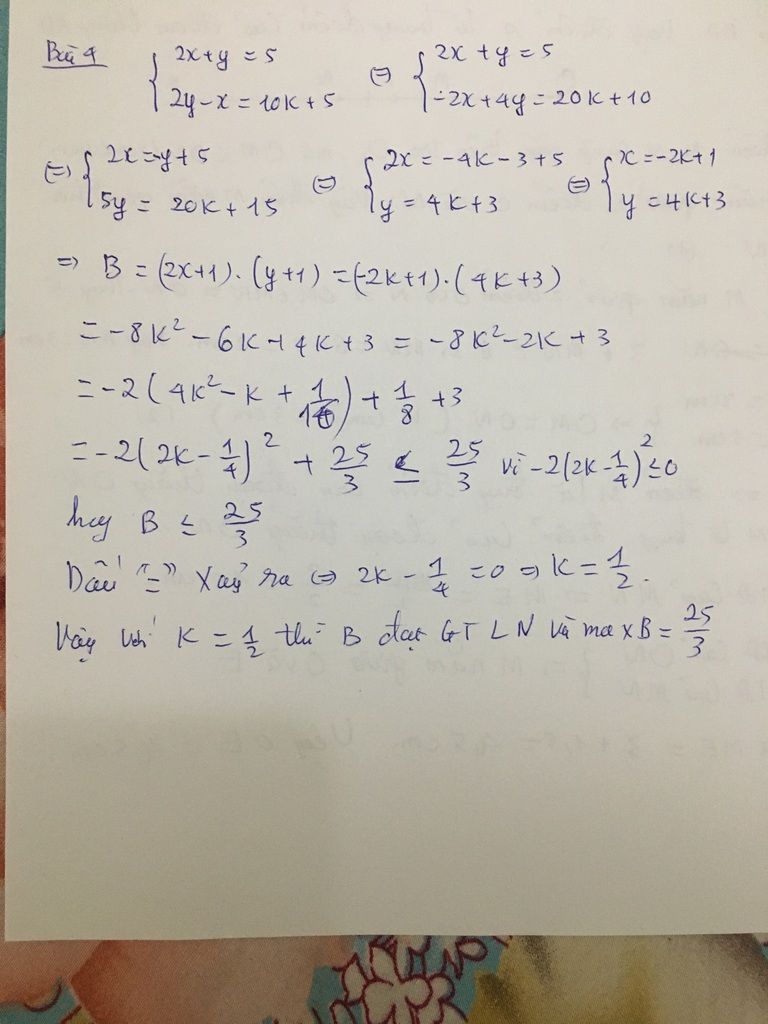 Bài 4 { 2x+y=5 2y-x=10K+5 ⇔ { 2x+y=5 -2x+4y=20K+10
⇔ { 2x=-y+5 5y=20K+15 ⇔ { 2x=-4K-3+5 y=4K+3 ⇔ { x=-2K+1 y=4K+3
⇒ B = (2x+1).(y+1) = (-2K+1).(4K+3)
= -8K² - 6K + 4K + 3 = -8K² - 2K + 3
= -2(4K² - K + 1/16) + 1/8 + 3
= -2(2K - 1/4)² + 25/3 ≤ 25/3 vì -2(2K - 1/4)² ≤ 0
hay B ≤ 25/3
Dấu "=" xảy ra ⇔ 2K - 1/4 = 0 ⇒ K = 1/2.
Vậy với K = 1/2 thì B đạt GTLN và max B = 25/3